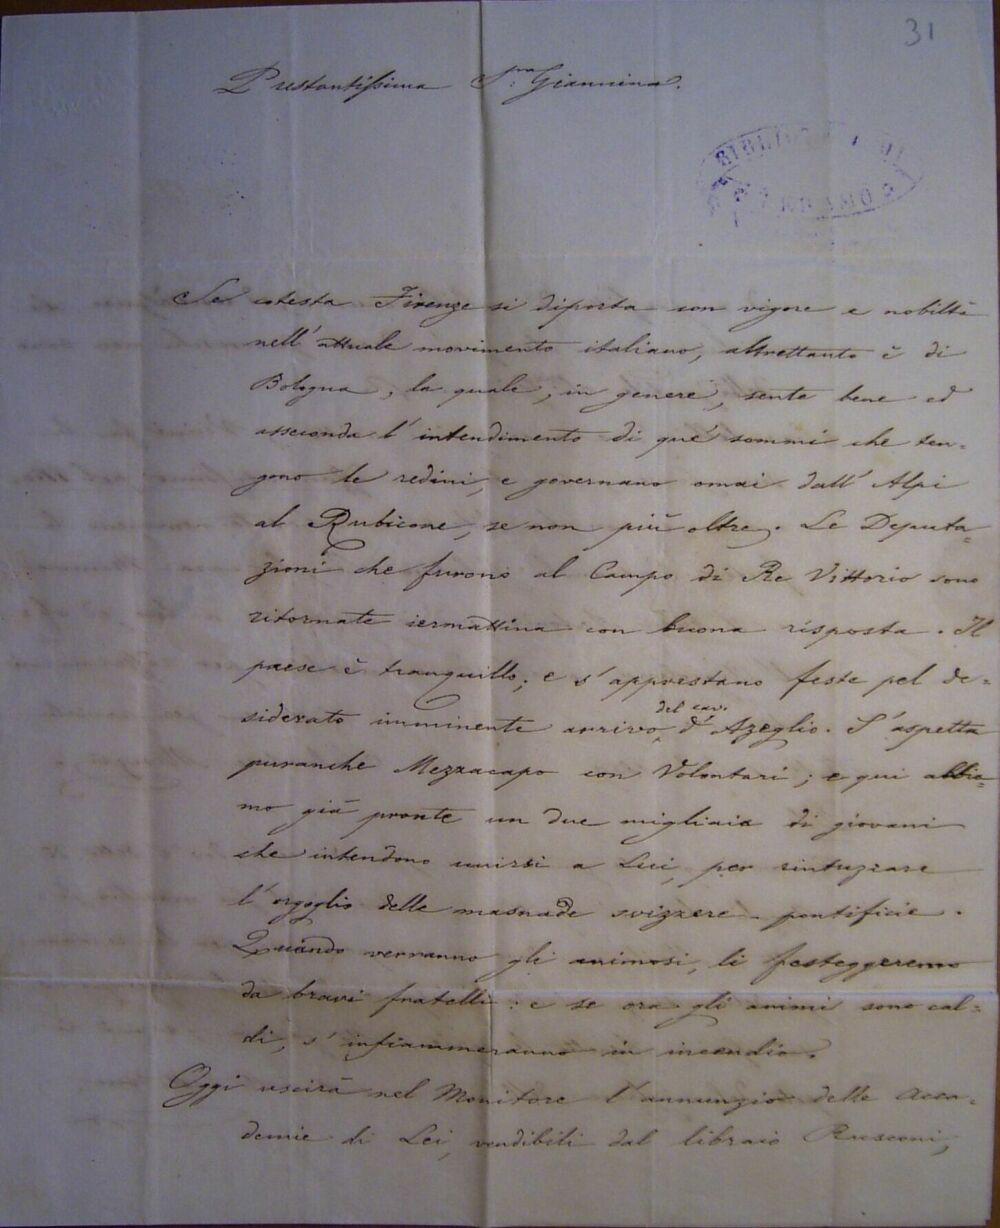 31
Prestantissima S.ra Giannina.
BIBLIO
Se cotesta Firenze si diporta con vigore e nobiltà
nell' attuale movimento italiano, altrettanto è di
Bologna, la quale, in genere, sente bene ed
asseconda l' intendimento di que' sommi che ten-
gono le redini, e governano omai dall' Alpi
al Rubicone, se non più oltre. Le Deputa-
zioni che furono al Campo di Re Vittorio sono
ritornate iermattina con buona risposta. Il
paese è tranquillo; e s' apprestano feste pel de-
siderato imminente arrivo del cav. d' Azeglio. S' aspetta
puranche Mezzacapo con Volontari; e qui abbia-
mo già pronte un due migliaia di giovani
che intendono unirsi a Lui, per rintuzzare
l' orgoglio delle masnade svizzere-pontificie.
Quando verranno gli animosi, li festeggeremo
da bravi fratelli: e se ora gli animi sono cal-
di, s' infiammeranno in incendio.
Oggi uscirà nel Monitore l' annunzio delle Acca-
demie di Lei, vendibili dal libraio Rusconi,